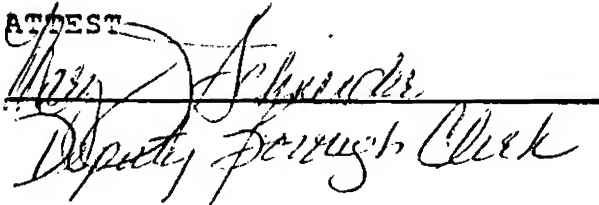 ATTEST
Mary J Schneider
Deputy Borough Clerk